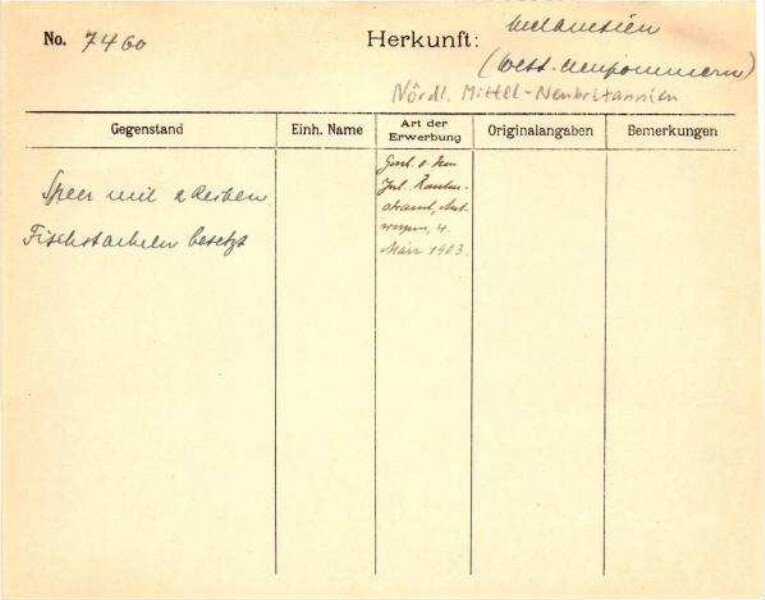 No. 7460
Herkunft: Melanesien
(West-Neupommern)
Nördl. Mittel-Neubritannien
Gegenstand
Einh. Name
Art der Erwerbung
Originalangaben
Bemerkungen
Speer mit 2 Reihen
Fischstacheln besetzt
Gesch. v. Herrn
Jul.
Antwerpen, 4.
März 1903.